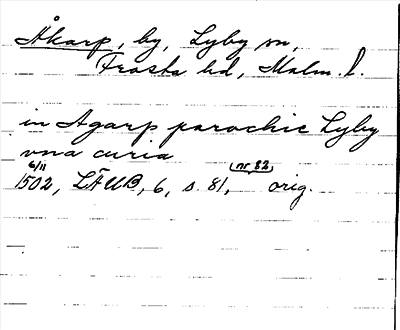 Åkarp, by, Lyby sn,
Frosta hd, Malm. l.
in Agarp parochie Lyby
vna curia
6/11 nr 82
1502, LÄUB, 6, s. 81, orig.